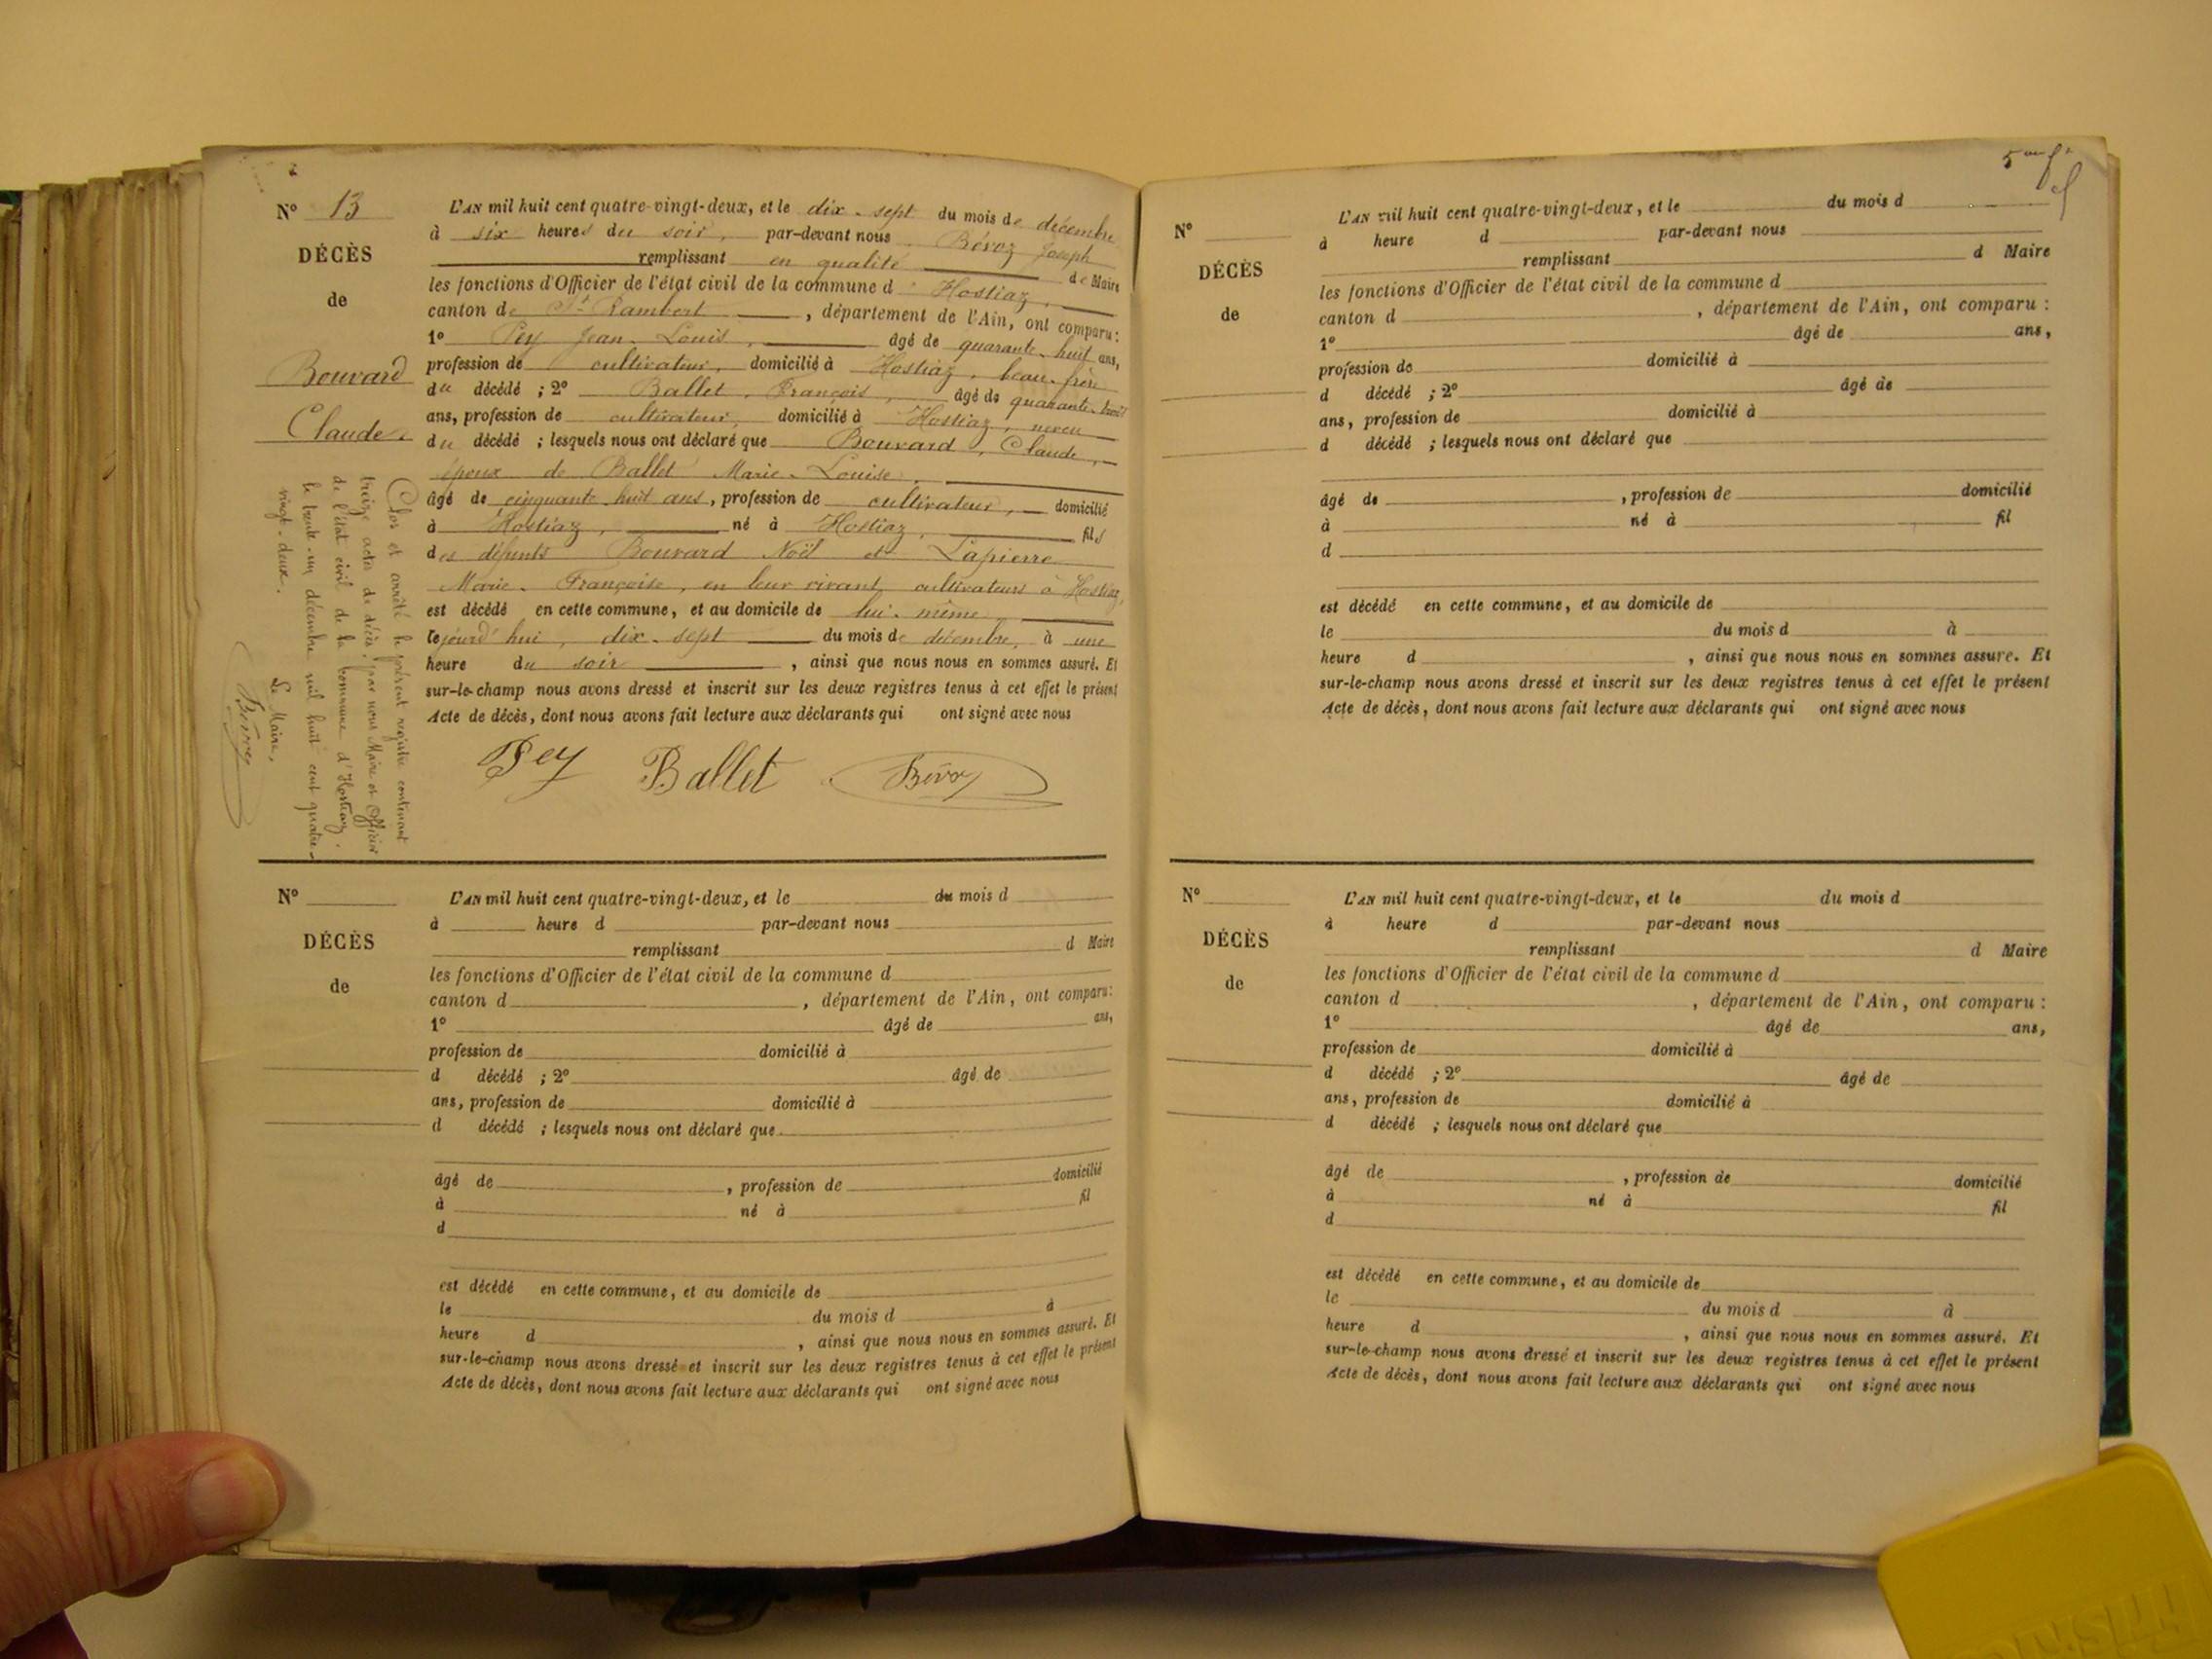 Nº 13
DÉCÈS
de
Bouvard
Claude.
L'AN mil huit cent quatre-vingt-deux, et le dix-sept du mois de décembre
à six heures du soir, par-devant nous Bévoz Joseph
remplissant en qualité de Maire
les fonctions d'Officier de l'état civil de la commune d'Hostiaz,
canton de St Rambert, département de l'Ain, ont comparu :
1º Pey Jean-Louis, âgé de quarante-huit ans,
profession de cultivateur, domicilié à Hostiaz, beau-frère
du décédé ; 2º Ballet, François, âgé de quarante-trois
ans, profession de cultivateur, domicilié à Hostiaz, neveu
du décédé ; lesquels nous ont déclaré que Bouvard, Claude,
époux de Ballet Marie-Louise,
âgé de cinquante-huit ans, profession de cultivateur, domicilié
à Hostiaz, né à Hostiaz, fils
des défunts Bouvard Noël et Lapierre
Marie-Françoise, en leur vivant cultivateurs à Hostiaz,
est décédé en cette commune, et au domicile de lui-même
le jourd'hui, dix-sept du mois de décembre, à une
heure du soir, ainsi que nous nous en sommes assuré. Et
sur-le-champ nous avons dressé et inscrit sur les deux registres tenus à cet effet le présent
Acte de décès, dont nous avons fait lecture aux déclarants qui ont signé avec nous
Pey Ballet Bévoz
Clos et arrêté le présent registre contenant
treize actes de décès, par nous Maire et Officier
de l'état civil de la commune d'Hostiaz,
le trente-un décembre mil huit cent quatre-
vingt-deux.
Le Maire,
Bévoz
Nº
DÉCÈS
de
L'AN mil huit cent quatre-vingt-deux, et le du mois d
à heure d par-devant nous
remplissant d Maire
les fonctions d'Officier de l'état civil de la commune d
canton d , département de l'Ain, ont comparu :
1º âgé de ans,
profession de domicilié à
d décédé ; 2º âgé de
ans, profession de domicilié à
d décédé ; lesquels nous ont déclaré que
âgé de , profession de domicilié
à né à fil
d
est décédé en cette commune, et au domicile de
le du mois d à
heure d , ainsi que nous nous en sommes assuré. Et
sur-le-champ nous avons dressé et inscrit sur les deux registres tenus à cet effet le présent
Acte de décès, dont nous avons fait lecture aux déclarants qui ont signé avec nous
Nº
DÉCÈS
de
L'AN mil huit cent quatre-vingt-deux, et le du mois d
à heure d par-devant nous
remplissant d Maire
les fonctions d'Officier de l'état civil de la commune d
canton d , département de l'Ain, ont comparu :
1º âgé de ans,
profession de domicilié à
d décédé ; 2º âgé de
ans, profession de domicilié à
d décédé ; lesquels nous ont déclaré que
âgé de , profession de domicilié
à né à fil
d
est décédé en cette commune, et au domicile de
le du mois d à
heure d , ainsi que nous nous en sommes assuré. Et
sur-le-champ nous avons dressé et inscrit sur les deux registres tenus à cet effet le présent
Acte de décès, dont nous avons fait lecture aux déclarants qui ont signé avec nous
Nº
DÉCÈS
de
L'AN mil huit cent quatre-vingt-deux, et le du mois d
à heure d par-devant nous
remplissant d Maire
les fonctions d'Officier de l'état civil de la commune d
canton d , département de l'Ain, ont comparu :
1º âgé de ans,
profession de domicilié à
d décédé ; 2º âgé de
ans, profession de domicilié à
d décédé ; lesquels nous ont déclaré que
âgé de , profession de domicilié
à né à fil
d
est décédé en cette commune, et au domicile de
le du mois d à
heure d , ainsi que nous nous en sommes assuré. Et
sur-le-champ nous avons dressé et inscrit sur les deux registres tenus à cet effet le présent
Acte de décès, dont nous avons fait lecture aux déclarants qui ont signé avec nous